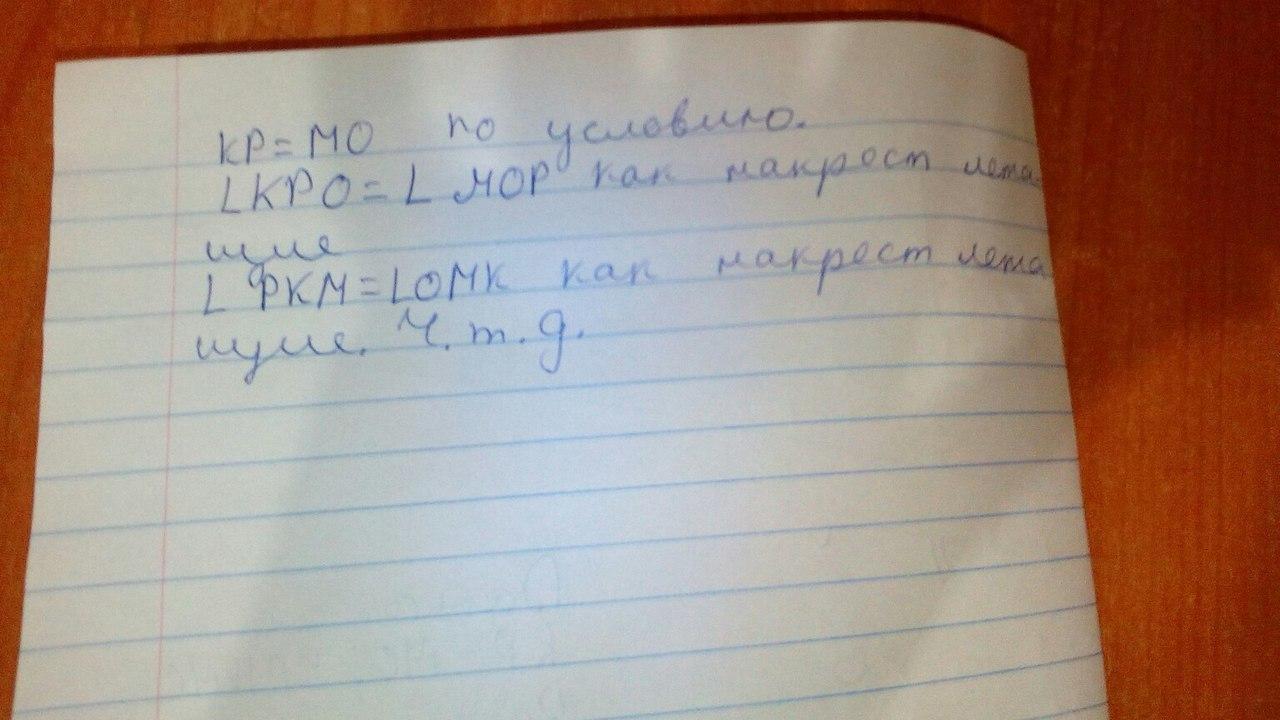 KP=MO по условию.
∠KPO=∠MOP как накрест лежа-
щие
∠PKM=∠OMK как накрест лежа
щие. Ч.т.д.